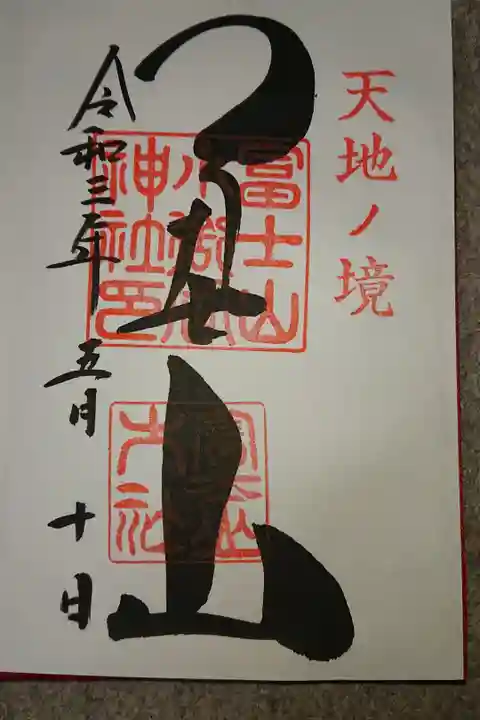 天地ノ境
冨士山
冨士山
小御嶽
神社印
令和三年 五月 十日